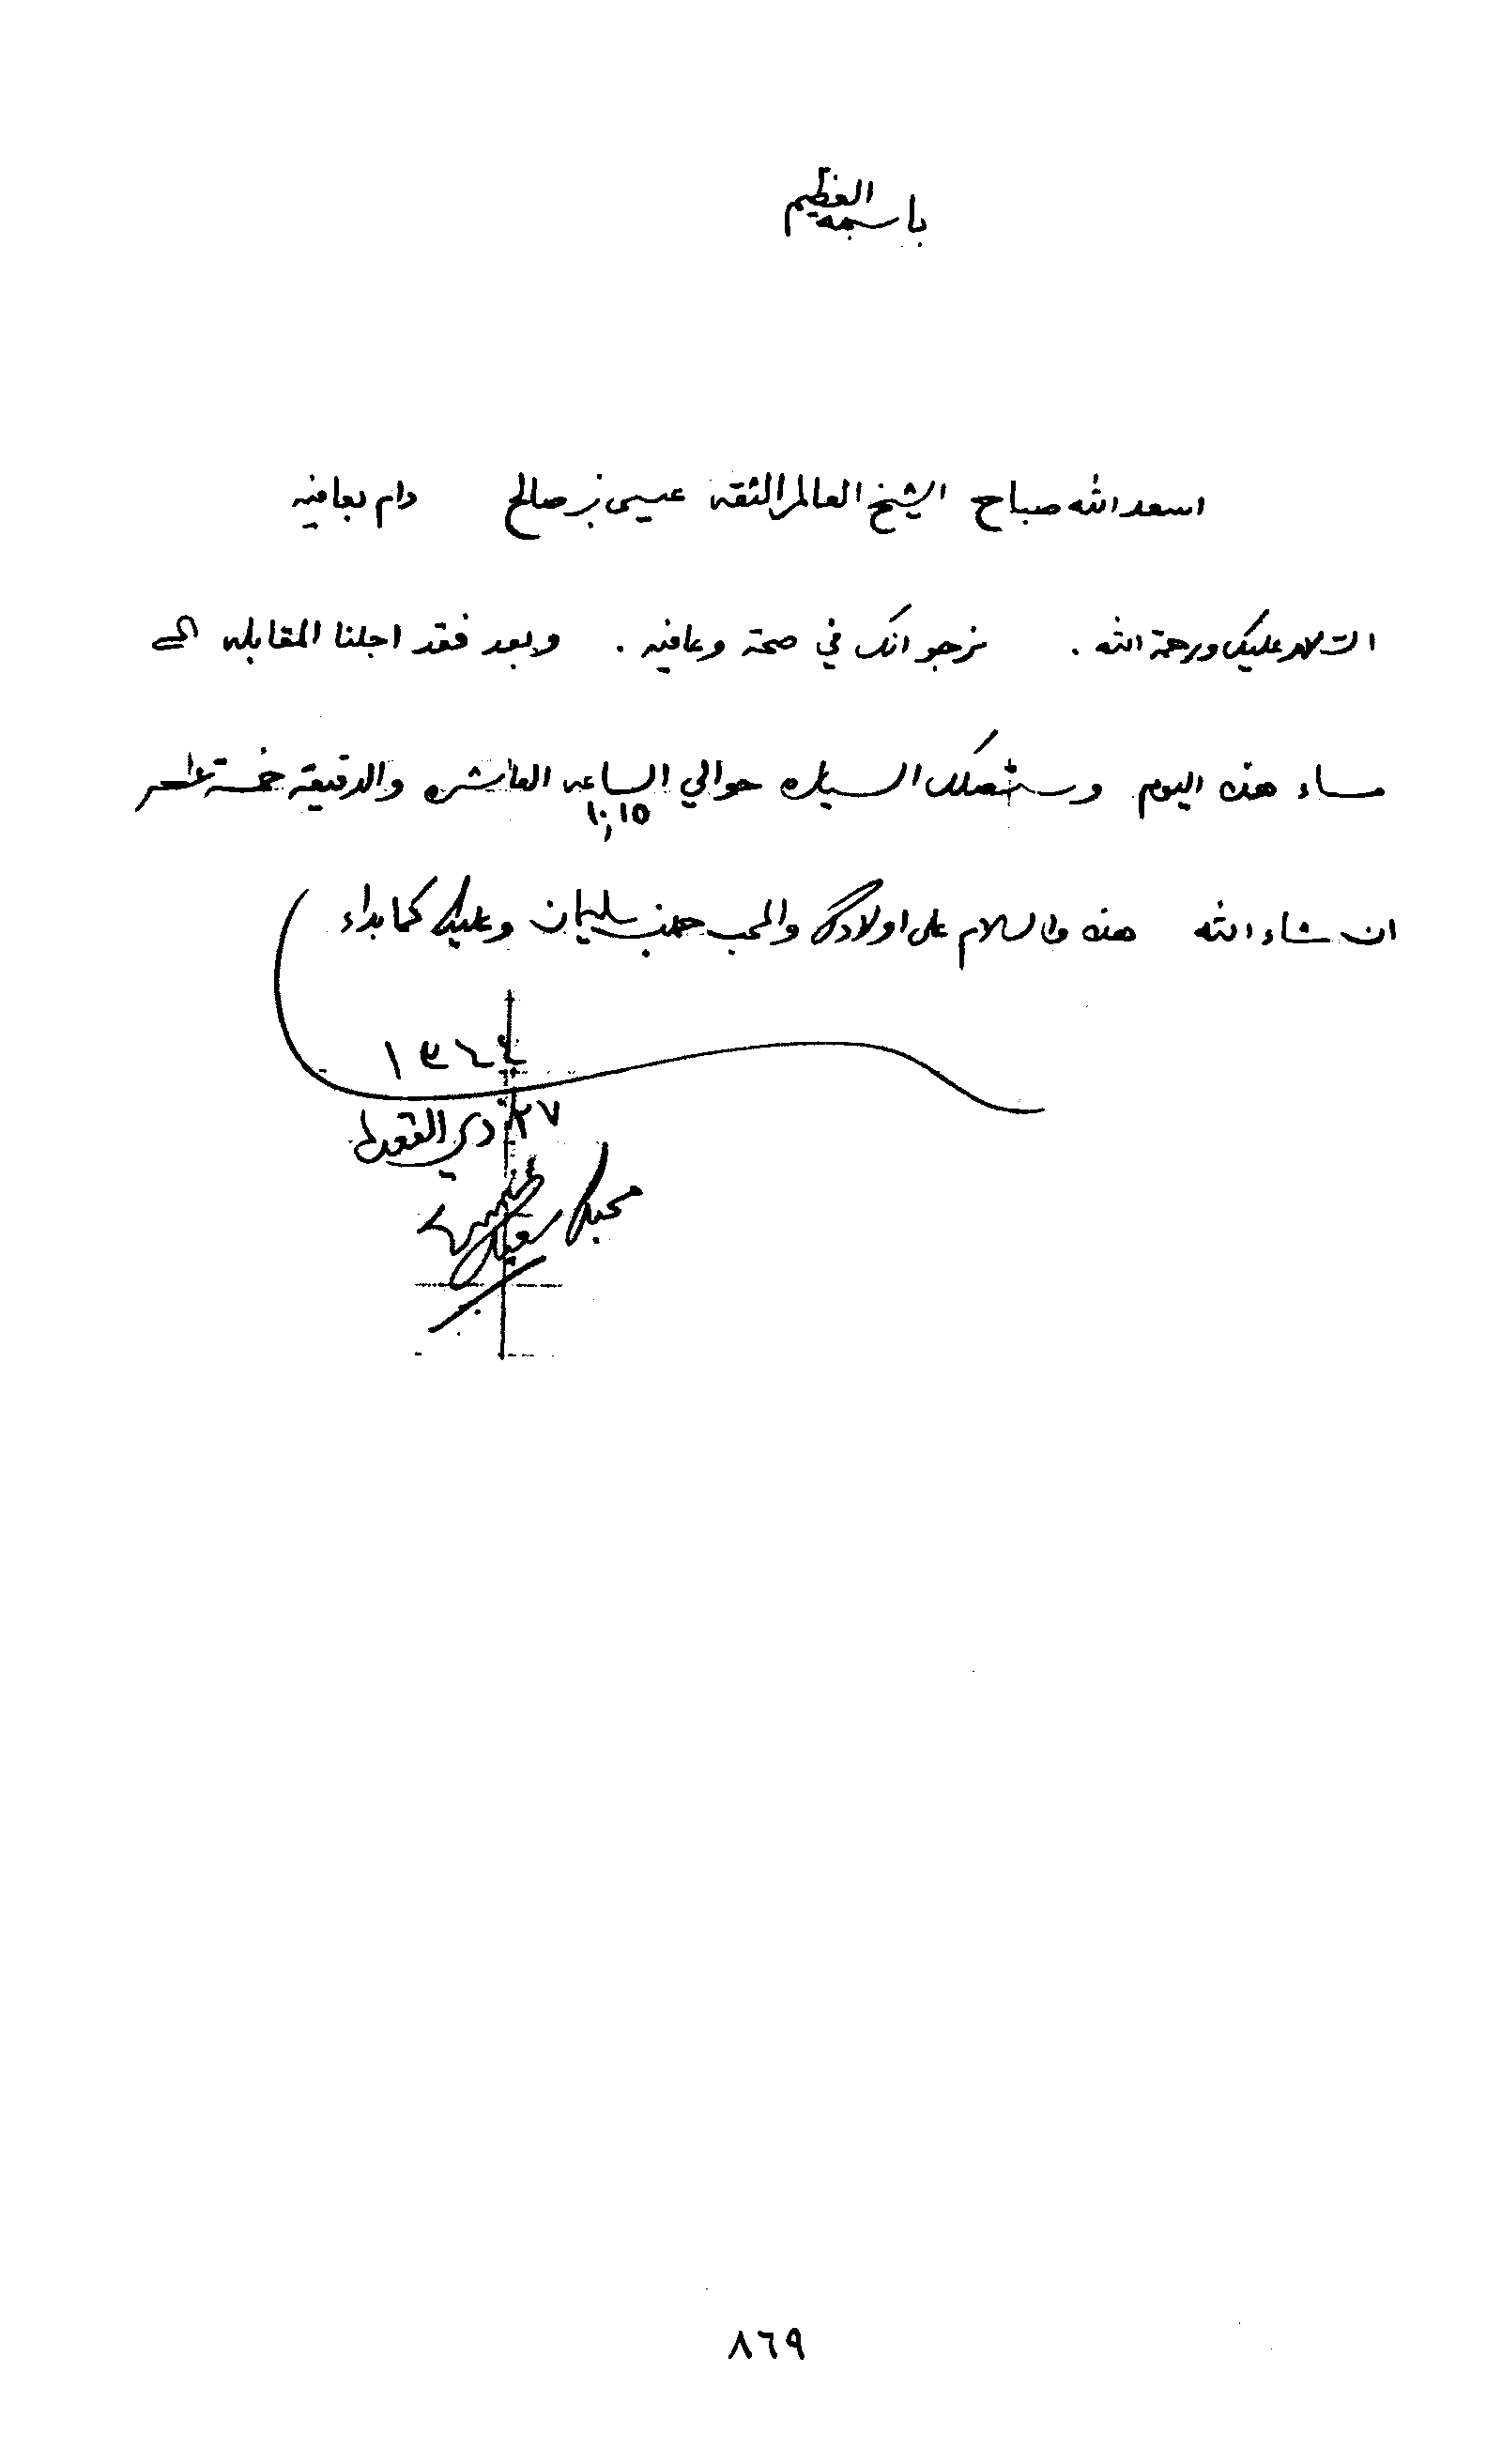 باسمه العظيم
اسعد الله صباح الشيخ العالم الثقه عيسى بن صالح دام بعافيه
السلام عليك ورحمة الله . نرجو انك في صحة وعافيه . وبعد فقد اجلنا المقابله الى
مساء هذه اليوم وستصلك السياره حوالي الساعه العاشره والدقيقة خمسة عشر
١٠,١٥
ان شاء الله هذه والسلام على اولادك والمحب حمد بن سليمان وعليك كما بداء
١٣٤٤
٢٧ ذي القعده
محبك سعيد
٨٦٩